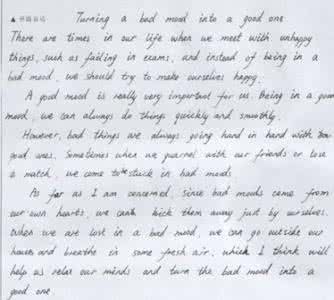 Turning a bad mood into a good one
There are times in our life when we meet with unhappy
things, such as failing in exams, and instead of being in a
bad mood, we should try to make ourselves happy.
A good mood is really very important for us. Being in a good
mood, we can always do things quickly and smoothly.
However, bad things are always going hand in hand with
good ones. Sometimes when we quarrel with our friends or lose
a match, we come to stuck in bad moods
As far as I am concerned, since bad moods come from
our own hearts, we can kick them away just by ourselves.
when we are lost in a bad mood, we can go outside our
houses and breathe in some fresh air, which I think will
help us relax our minds and turn the bad mood into a
good one.